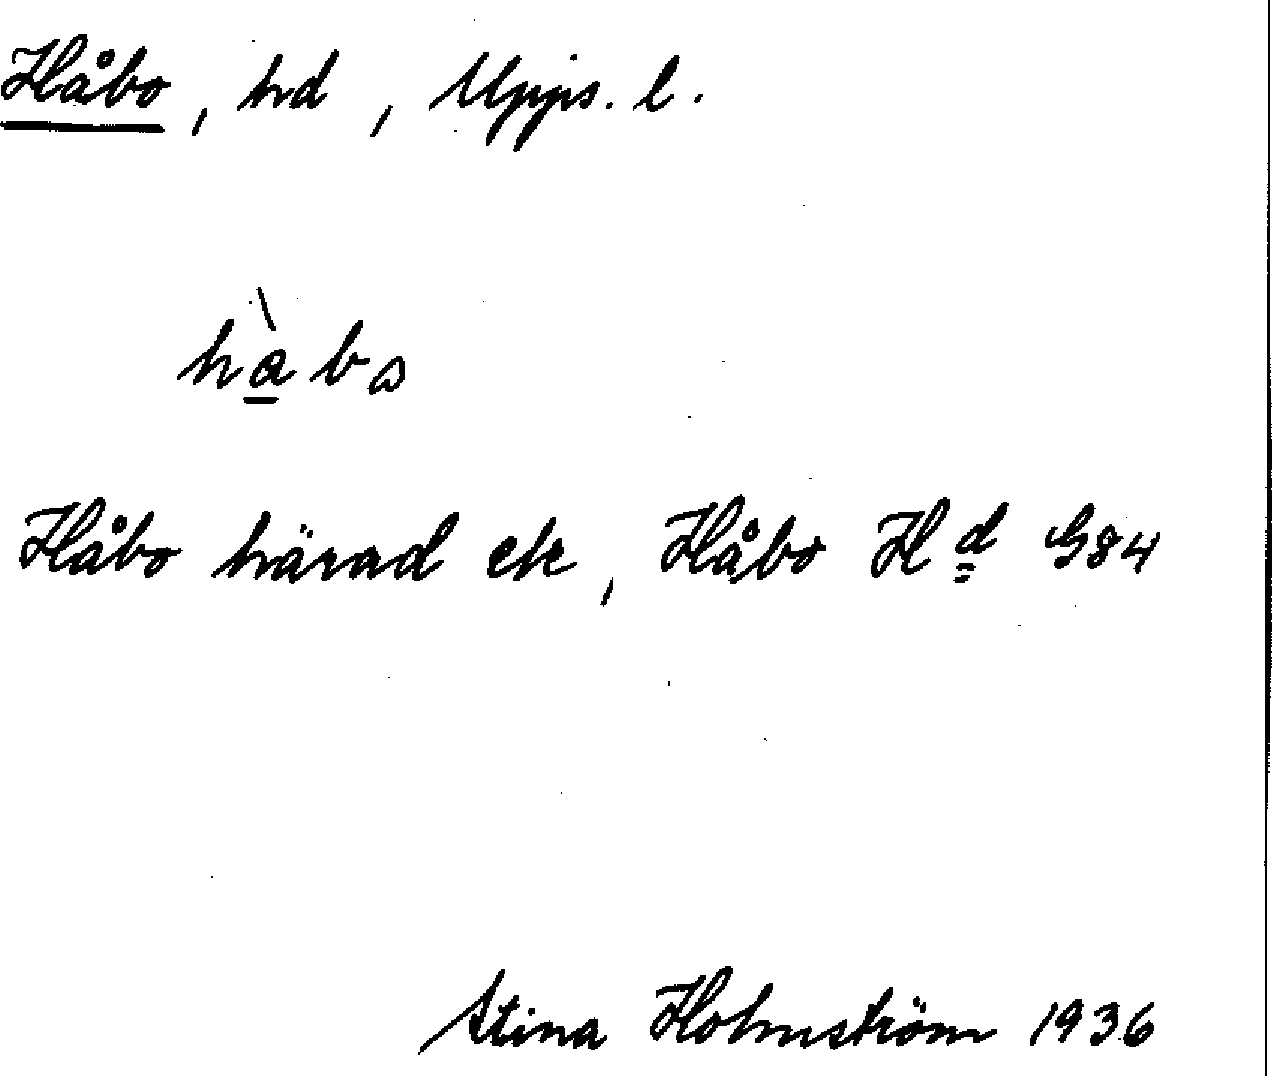 Håbo, hd, Upps. l.
hàbɷ
Håbo härad ek, Håbo Hd G84
Stina Holmström 1936